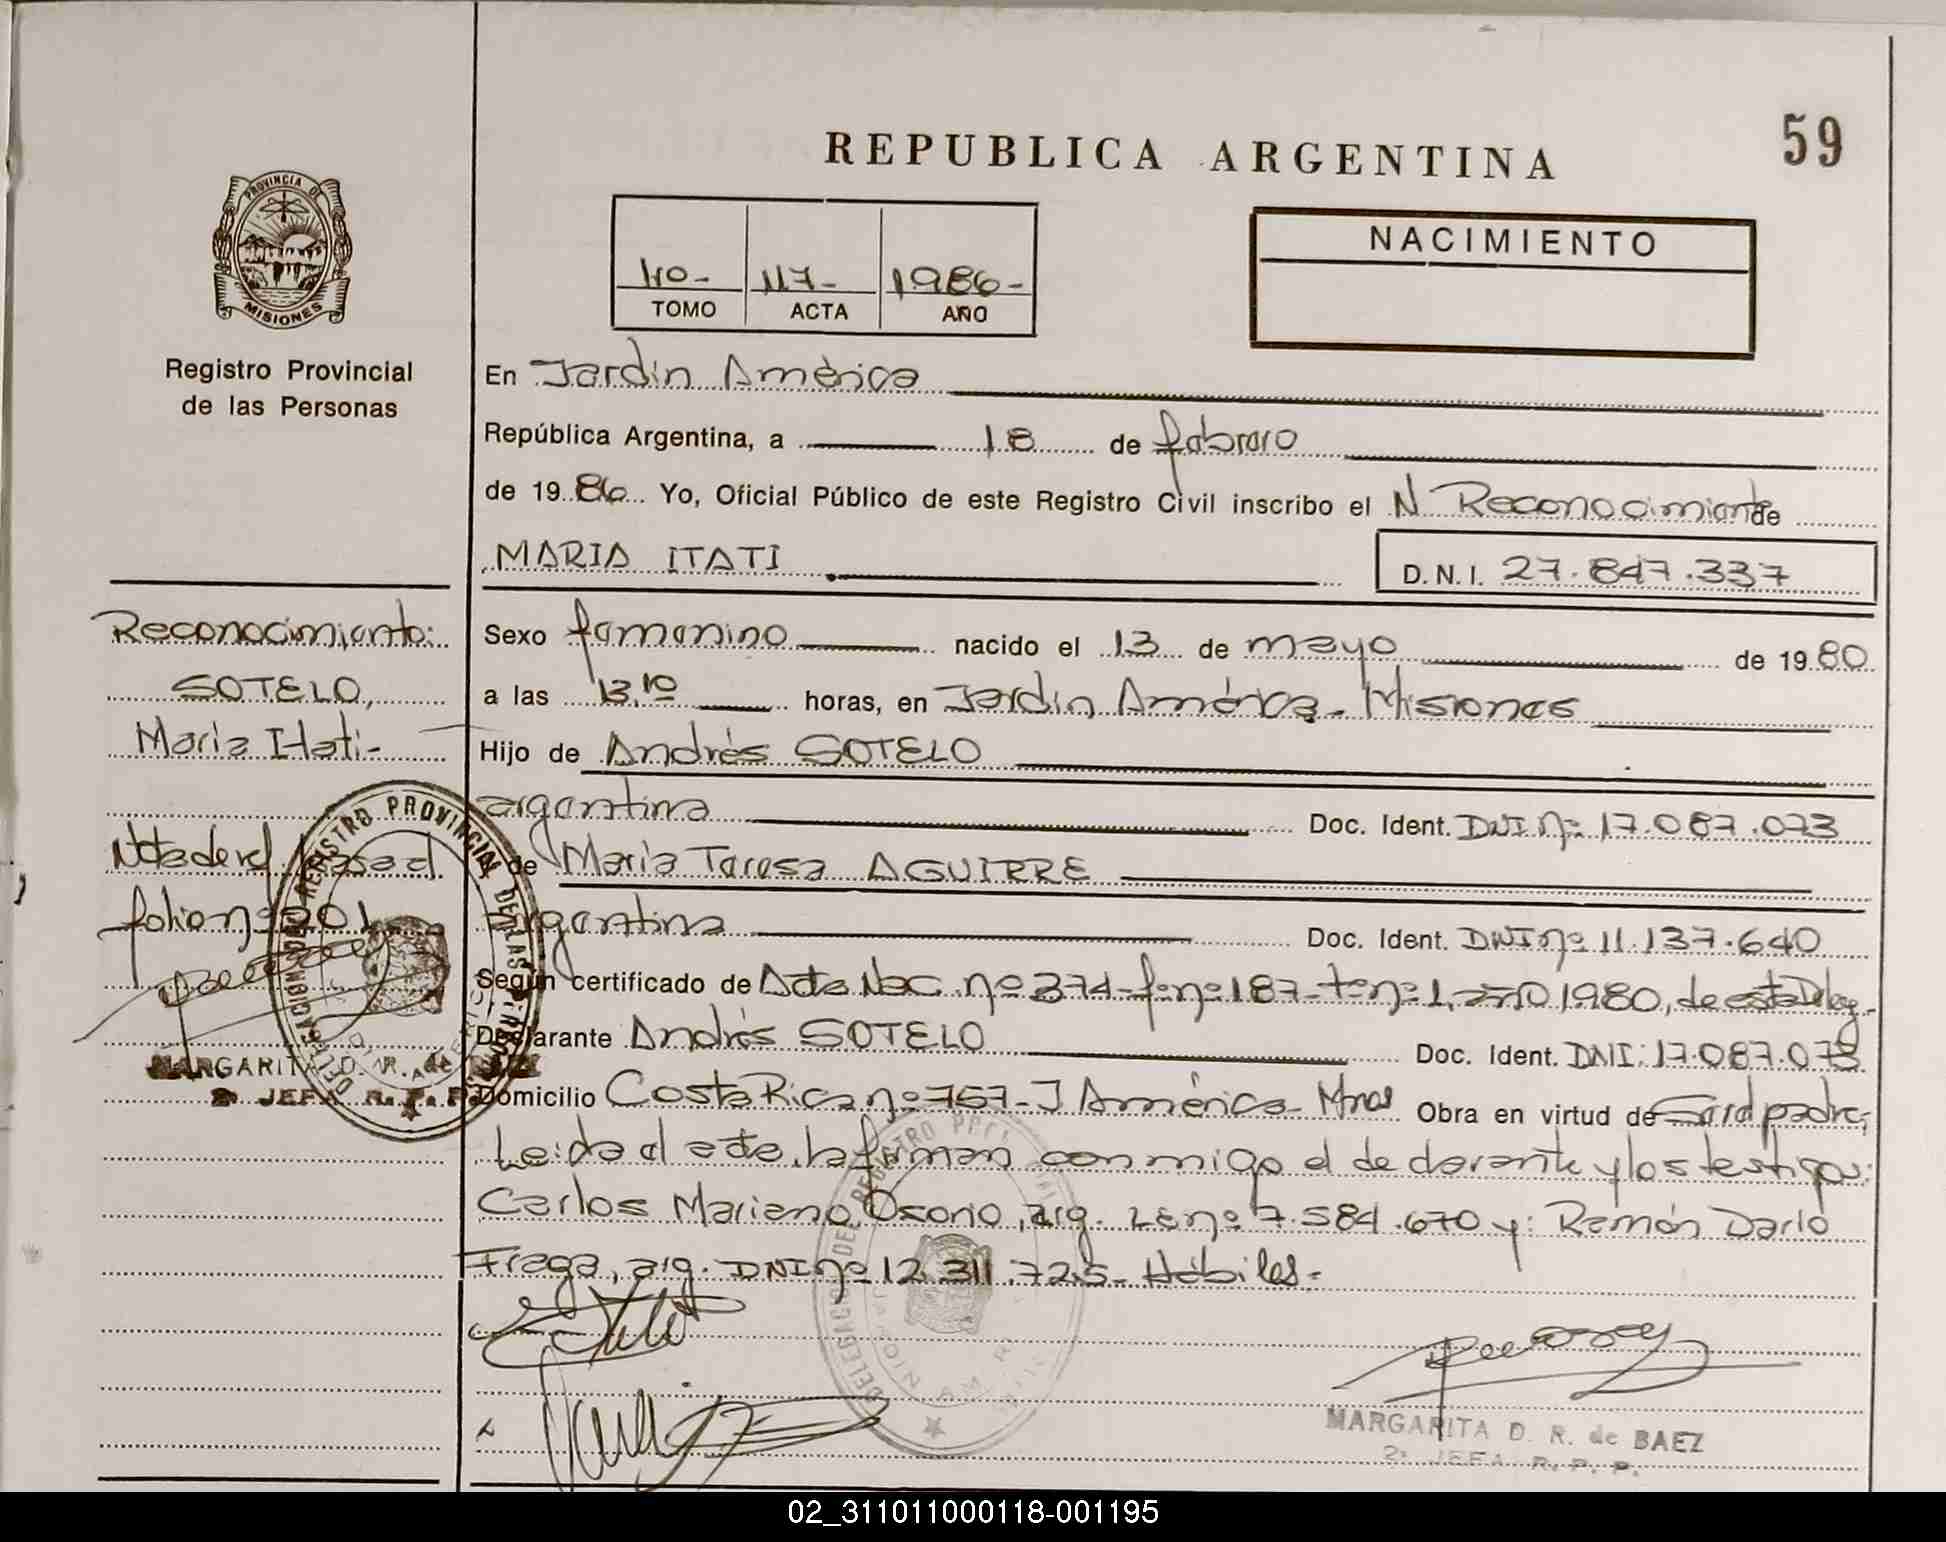 59
REPUBLICA ARGENTINA
PROVINCIA DE
MISIONES
Registro Provincial
de las Personas
NACIMIENTO
40- 117- 1986-
TOMO ACTA AÑO
En Jardín América
República Argentina, a 18 de febrero
de 1986 Yo, Oficial Público de este Registro Civil inscribo el N Reconocimiento de
MARIA ITATI D.N.I. 27.847.337
Reconocimiento:
SOTELO,
Maria Itati-
Nota de ref. pasa al
folio nº 201
MARGARITA D. R. de BAEZ
2ª JEFA R. P. P.
Sexo femenino nacido el 13 de mayo de 1980
a las 13.10 horas, en Jardín América - Misiones
Hijo de Andrés SOTELO
argentina Doc. Ident. DNI nº 17.087.073
de Maria Teresa AGUIRRE
argentina Doc. Ident. DNI nº 11.137.640
Según certificado de Acta Nac. nº 374-fº nº 187-tº nº 1, año 1980, de esta Deleg.
Declarante Andrés SOTELO Doc. Ident. DNI: 17.087.073
Domicilio Costa Rica nº 757-J América- Mnes Obra en virtud de ser el padre,
Leída el acta, la firman conmigo el declarante y los testigos:
Carlos Mariano Osorio, arg. LE nº 7.584.670 y: Ramón Darío
Fraga, arg. DNI nº 12.311.725- Hábiles-
REGISTRO PROVINCIAL DE LAS
MARGARITA D. R. de BAEZ
2ª JEFA R. P. P.
02_311011000118-001195